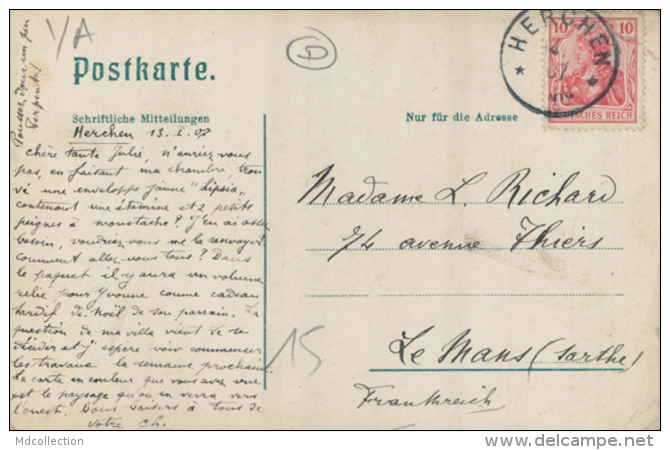 1/A
4
Pousser donc un peu
Serpent!
Postkarte.
Schriftliche Mitteilungen
Nur für die Adresse
HERCHEN
10 10
DEUTSCHES REICH
Herchen 13. I. 07
Chère tante Julie, n'auriez-vous
pas, en faisant ma chambre, trou
vé une enveloppe jaune "Lipsia"
contenant une étamine et 2 petits
peignes à moustache? J'en ai assez
besoin, voudriez-vous me la renvoyer?
Comment allez-vous tous? Dans
le paquet il y aura un volume
relié pour Yvonne comme cadeau
tardif de noël de son parrain. La
question de ma villa vient de se
décider et j'espère voir commencer
les travaux la semaine prochaine.
La carte en couleur que vous avez vue
est le paysage qu'on en verra vers
l'ouest. Doux baisers à tous de
votre Ch.
Madame L. Richard
74 avenue Thiers
Le Mans (Sarthe)
Frankreich
15
Mdcollection
www.delcampe.net